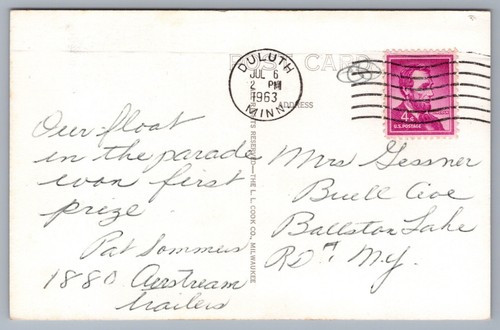 POST CARD
DULUTH
JUL 6
2 PM
1963
MINN.
ADDRESS
4¢
U.S. POSTAGE
Our float
in the parade
won first
prize.
Pat Sommers
1880 Airstream
trailers
RIGHTS RESERVED—THE L. L. COOK CO. MILWAUKEE
Mrs Gessner
Buell Ave
Ballston Lake
RD #1 N.Y.